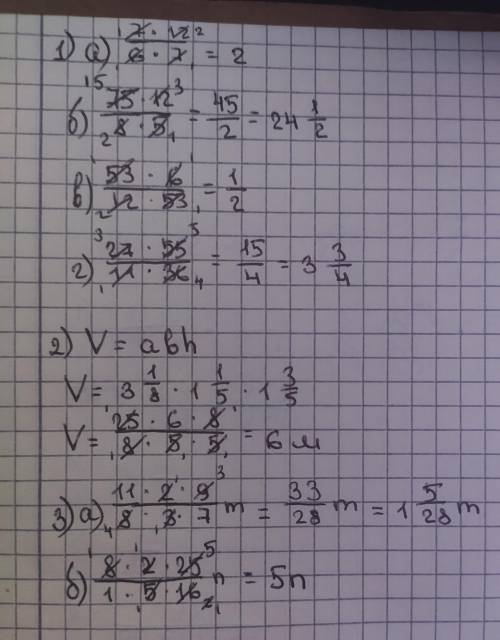 1) а) (7 · 12²)/(6 · 7) = 2
б) (75¹⁵ · 12³)/(8₂ · 5₁) = 45/2 = 24 1/2
в) (53¹ · 6¹)/(12₂ · 53₁) = 1/2
г) (27³ · 55⁵)/(11₁ · 36₄) = 15/4 = 3 3/4
2) V = abh
V = 3 1/8 · 1 1/5 · 1 3/5
V = (25 · 6 · 8)/(8 · 5 · 5) = 6 м
3) а) (11 · 2¹ · 9³)/(8₄ · 3₁ · 7) m = 33/28 m = 1 5/28 m
б) (8¹ · 2¹ · 25⁵)/(1 · 5₁ · 16₂₁) n = 5n